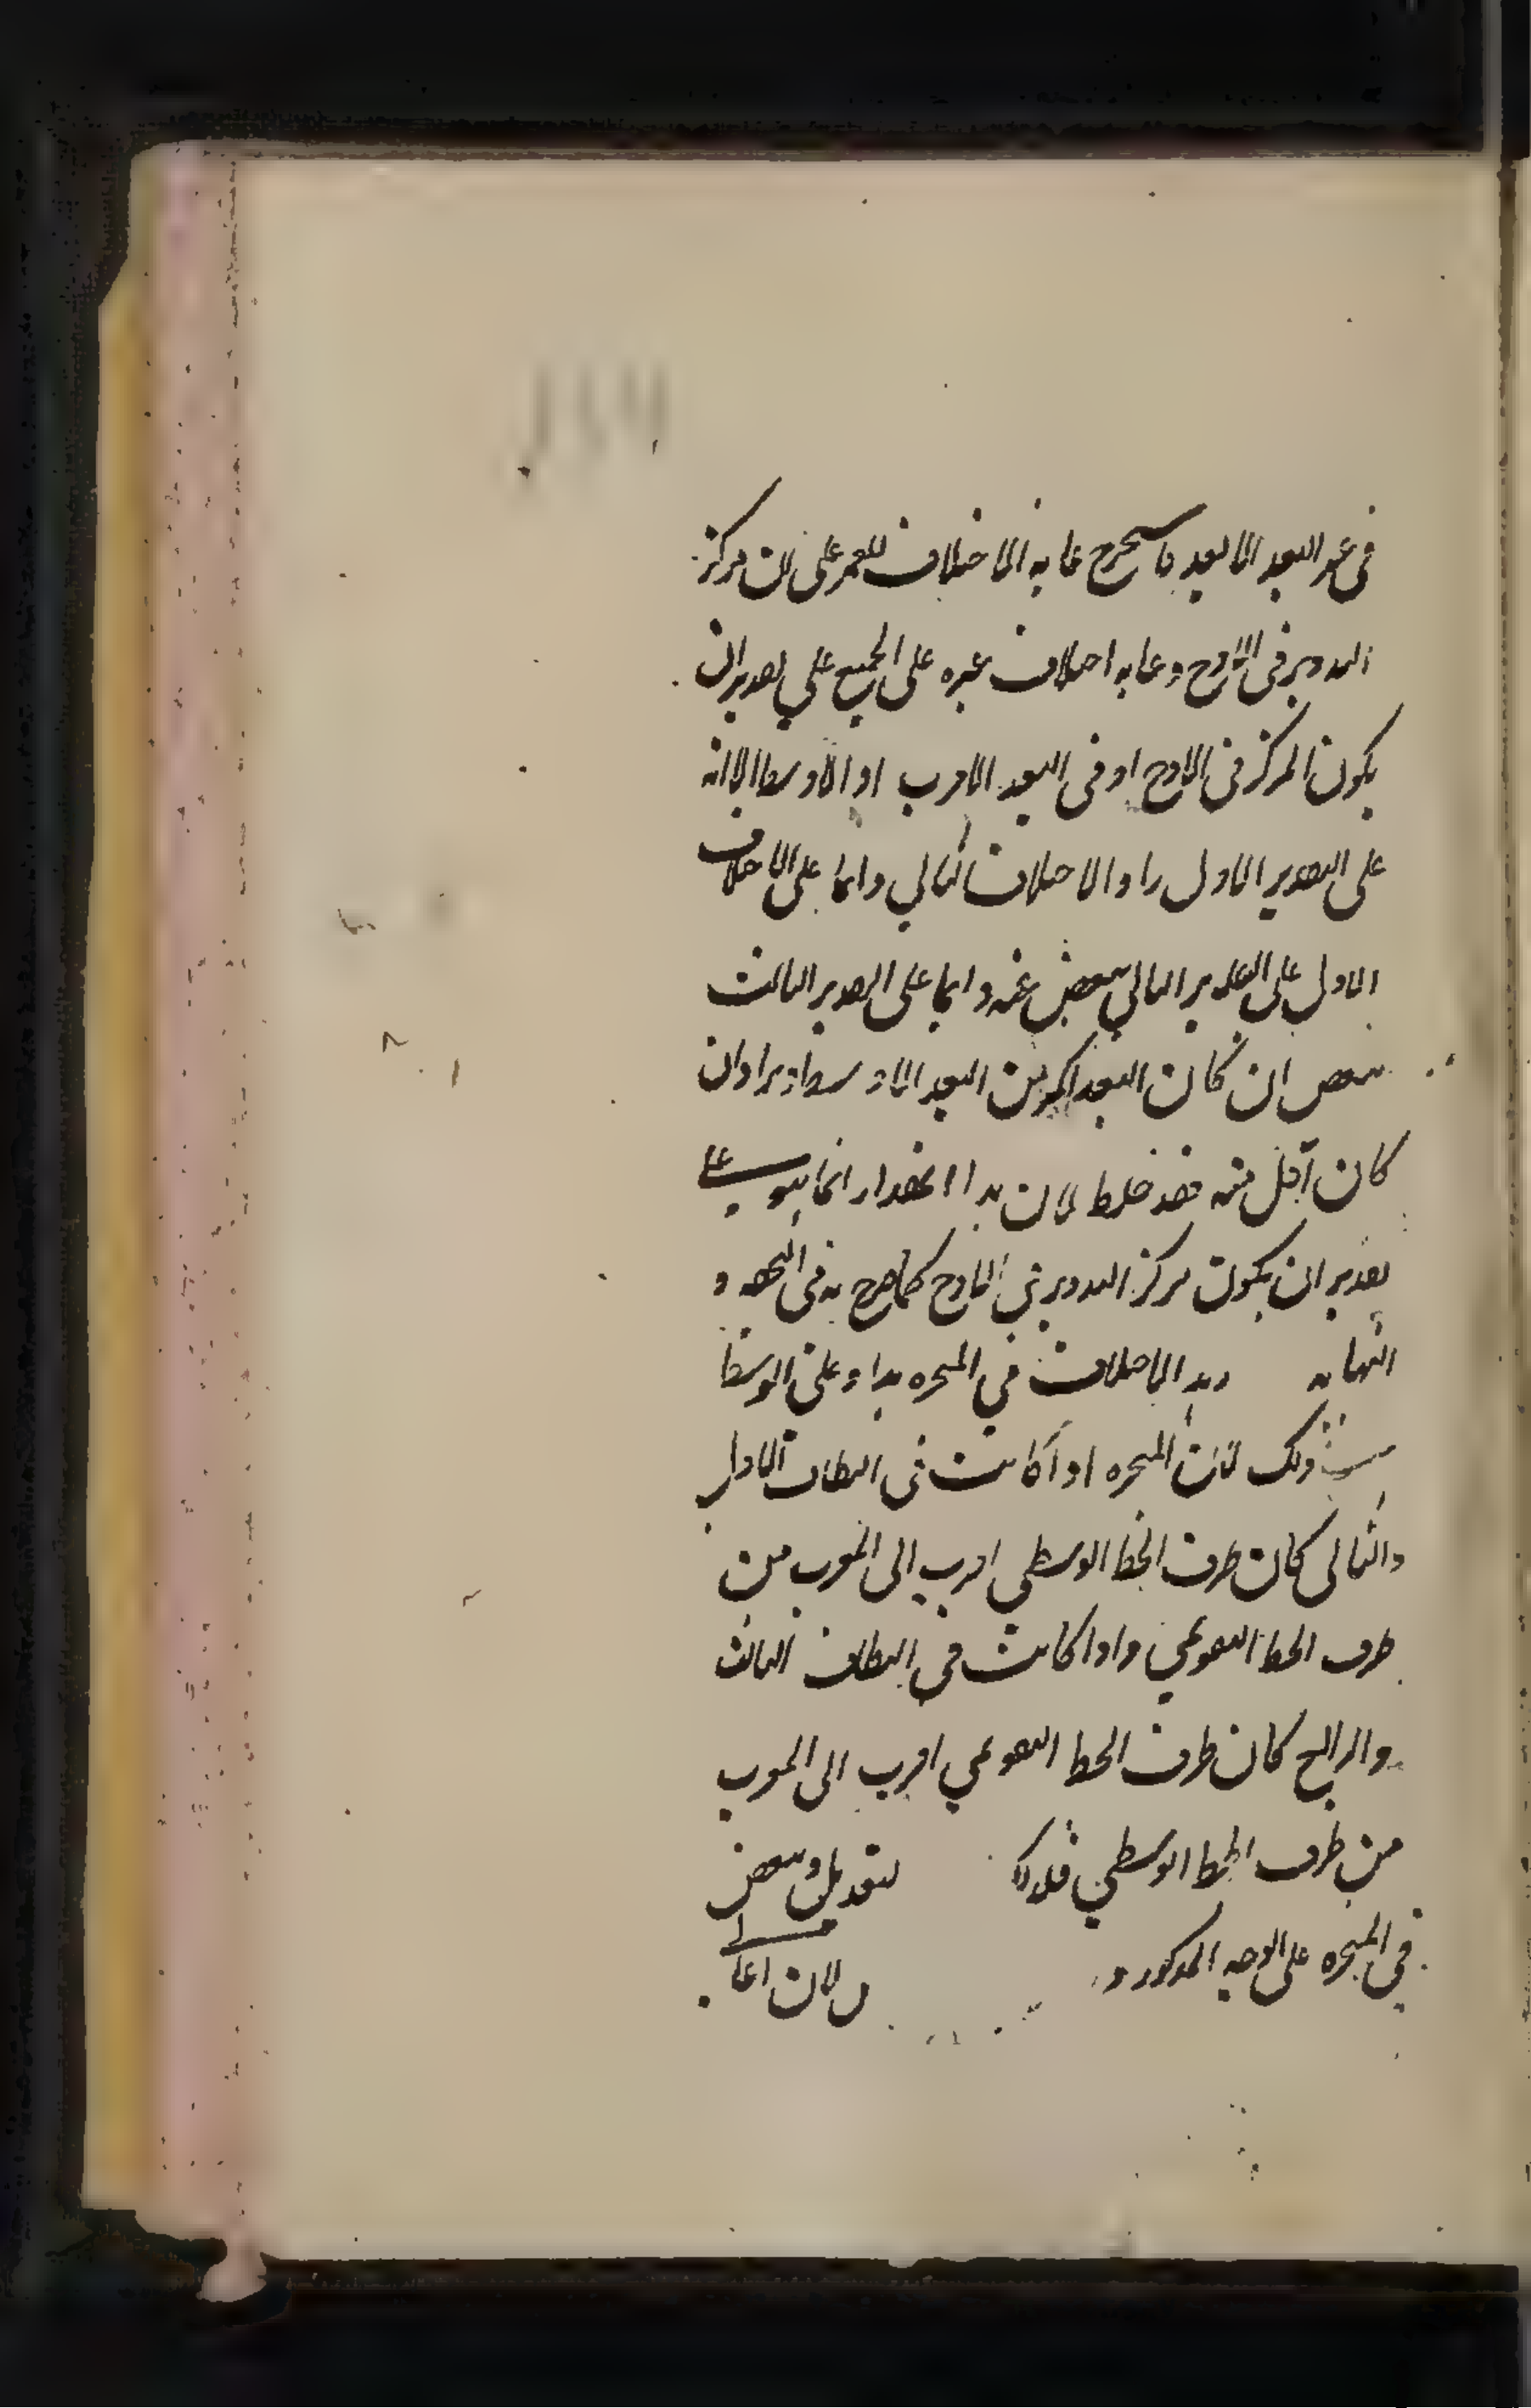 في غير البعد الابعد فاستخرج غاية الاختلاف للقمر على ان مركز
التدوير في الاوج وغاية اختلاف غيره على الجميع على تقدير ان
يكون المركز في الاوج او في البعد الاقرب او الاوسط الا انه
على التقدير الاول زاد الاختلاف الثاني دائما على الاختلاف
الاول على التقدير الثاني ينقص عنه دائما على التقدير الثالث
ينقص ان كان البعد اكثر من البعد الاوسط ويزاد ان
كان اقل منه فقد خلط لان هذا المقدار انما هو على
تقدير ان يكون مركز التدوير في الاوج كما صرح به في التحفة و
النهاية الاختلاف في المتحيرة يزاد على الوسط
ذلك لان المتحيرة اذا كانت في النطاق الاول
والثاني كان طرف الخط الوسطي اقرب الى المغرب من
طرف الخط التقويمي واذا كانت في النطاق الثالث
والرابع كان طرف الخط التقويمي اقرب الى المغرب
من طرف الخط الوسطي فلذلك التعديل وينقص
في المتحيرة على الوجه المذكور و لان اعا